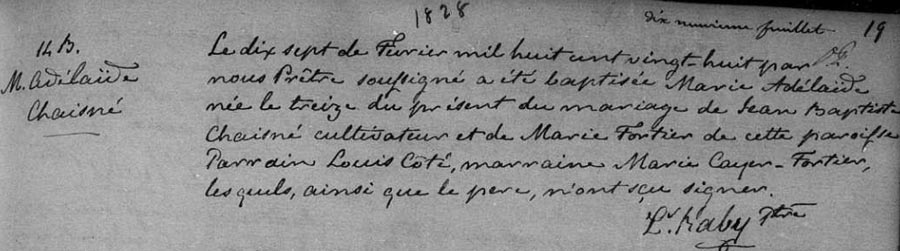 1828
dix nuvieme fuillet 19
14 B.
M. Adélaïde
Chaisné
Le dix sept de Février mil huit cent vingt-huit par
nous Prêtre soussigné a été baptisée Marie Adélaïde
née le treize du présent du mariage de Jean Baptiste
Chaisné cultivateur et de Marie Fortier de cette paroisse
Parrain Louis Coté, marraine Marie Cayer-Fortier,
les quels, ainsi que le pere, n'ont sçu signer.
Ls. Raby Ptre